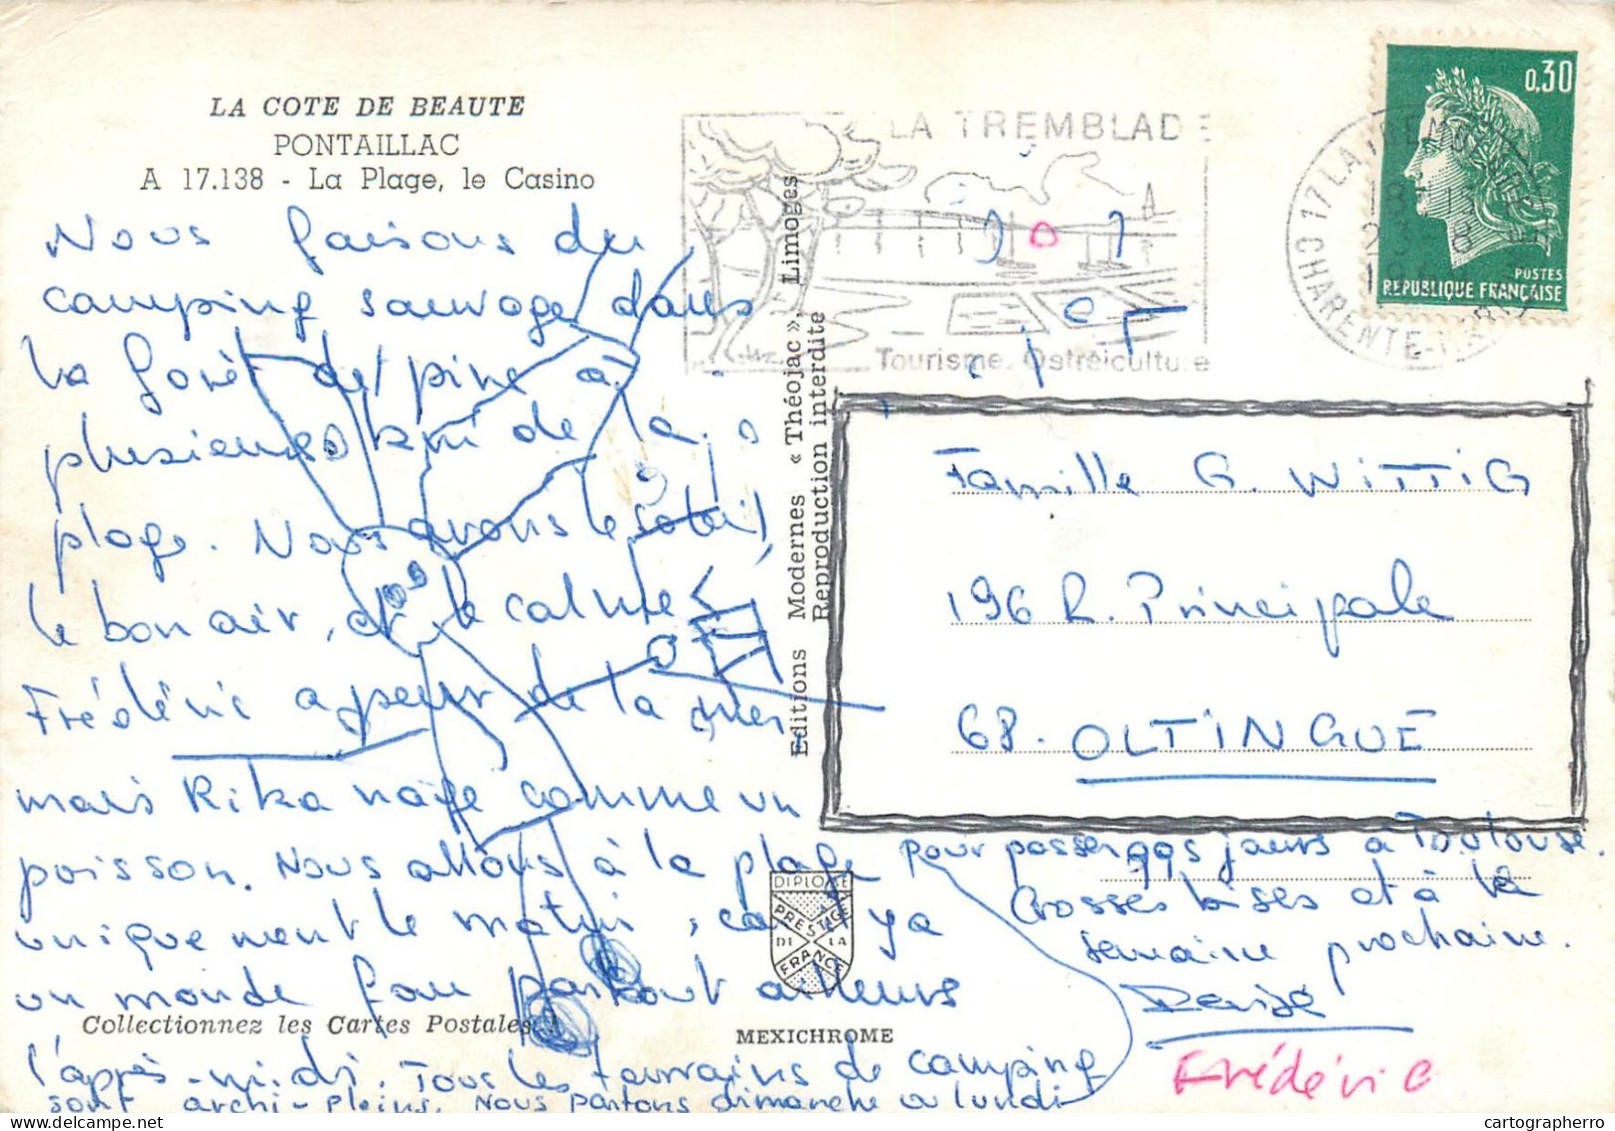 LA COTE DE BEAUTE
PONTAILLAC
A 17.138 - La Plage, le Casino
Nous faisons du
camping sauvage dans
la forêt de pins à
plusieurs km de la
plage. Nous avons le soleil,
le bon air, et le calme
Frédéric a peur de la mer,
mais Rika nage comme un
poisson. Nous allons à la plage
uniquement le matin, car il y a
un monde fou partout ailleurs
l'après-midi. Tous les terrains de camping
sont archi-pleins. Nous partons dimanche ou lundi
pour passer qqs jours à Toulouse.
Grosses bises et à la
semaine prochaine.
Denise
Frédéric
Collectionnez les Cartes Postales !
Editions Modernes « Théojac », Limoges
Reproduction interdite
DIPLOME
PRESTIGE
DE LA
FRANCE
MEXICHROME
LA TREMBLADE
Tourisme. Ostréiculture
17 LA TREMBLADE
CHARENTE-MARITIME
0,30
POSTES
REPUBLIQUE FRANÇAISE
Famille G. WITTIG
196 R. Principale
68. OLTINGUE
cartographerro